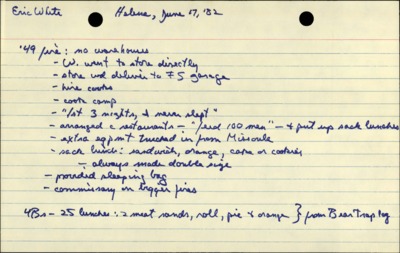 Eric White Helena, June 17, '82
'49 fire: no warehouses
- W. went to store directly
- store wd deliver to FS garage
- hire cooks
- cook camp
- "1st 3 nights, I never slept"
- arranged c restaurants - "feed 100 men" - & put up sack lunches
- extra eqpmt trucked in from Missoula
- sack lunch: sandwich, orange, cake or cookies
- always made double size
- provided sleeping bag
- commissary on bigger fires
4Bs - 25 lunches: 2 meat sands, roll, pie & orange } from Bear Trap log